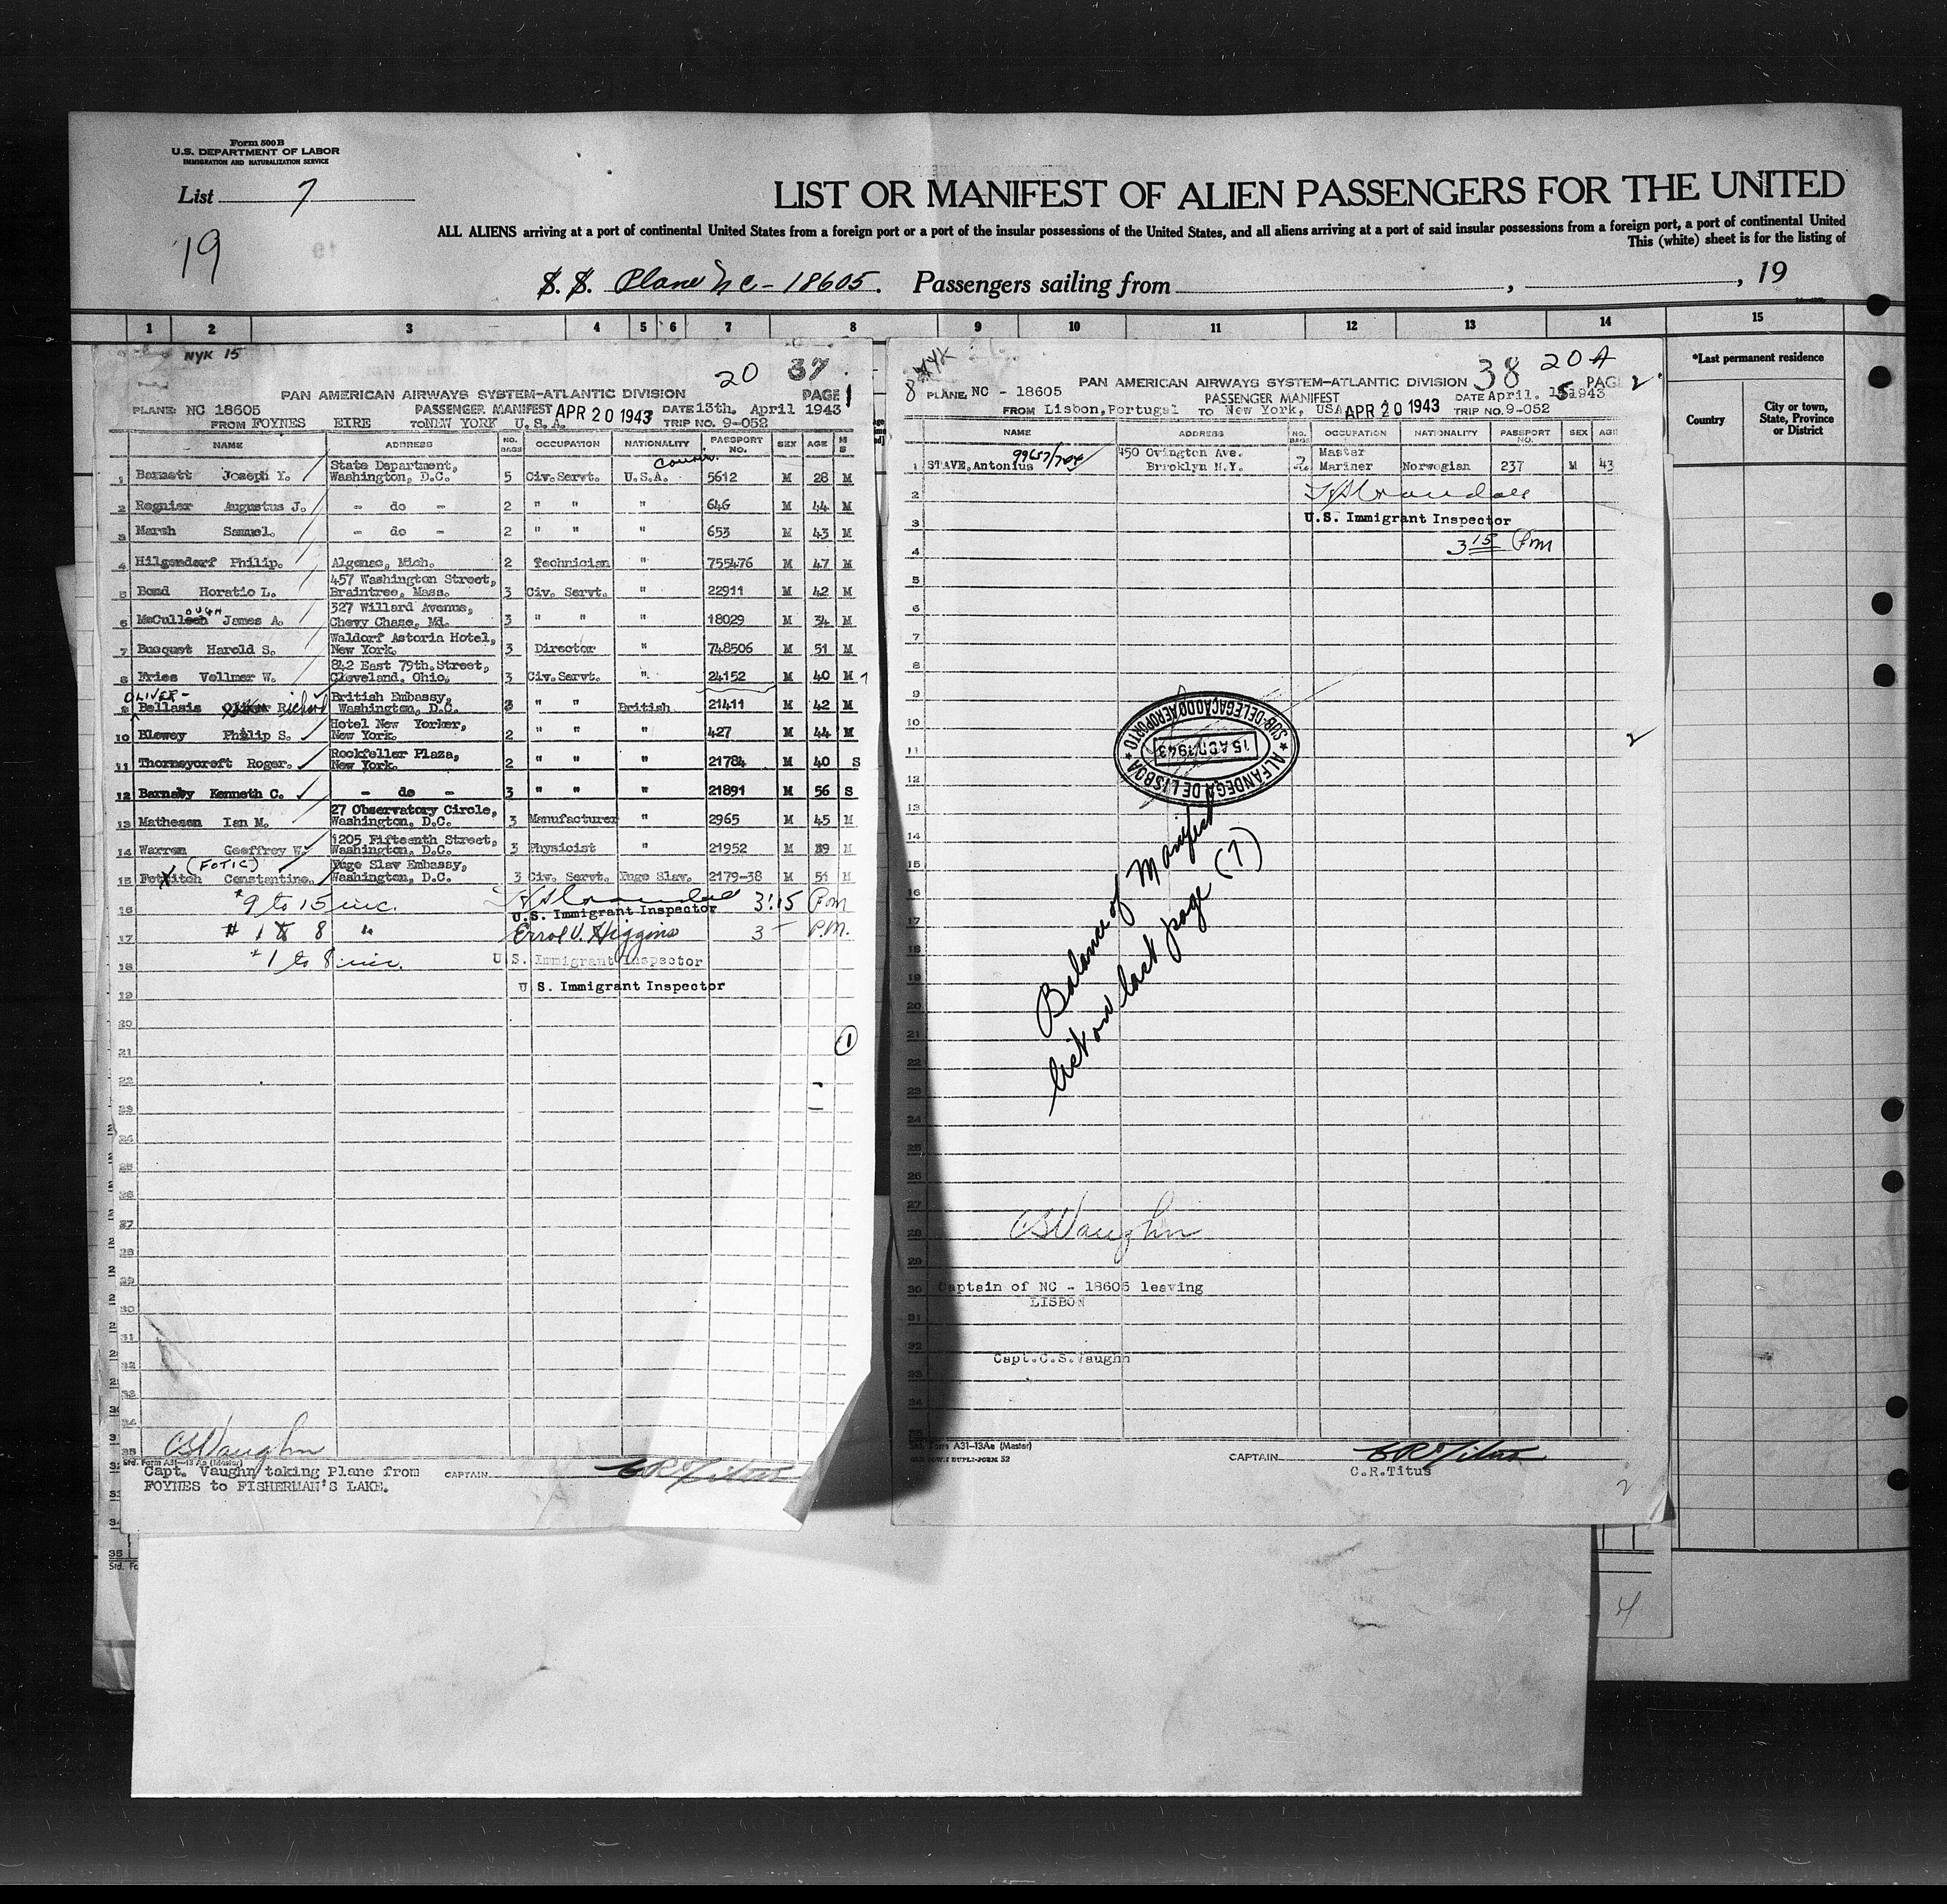 Form 500B
U.S. DEPARTMENT OF LABOR
IMMIGRATION AND NATURALIZATION SERVICE
List 7
19
LIST OR MANIFEST OF ALIEN PASSENGERS FOR THE UNITED
ALL ALIENS arriving at a port of continental United States from a foreign port or a port of the insular possessions of the United States, and all aliens arriving at a port of said insular possessions from a foreign port, a port of continental United
This (white) sheet is for the listing of
S.S. Plane NC-18605. Passengers sailing from , , 19
1 2 3 4 5 6 7 8 9 10 11 12 13 14 15
*Last permanent residence
Country City or town, State, Province or District
NYK 15
20 37
PAN AMERICAN AIRWAYS SYSTEM-ATLANTIC DIVISION PAGE 1
PLANE: NC 18605 PASSENGER MANIFEST APR 20 1943 DATE 13th. April 1943
FROM FOYNES EIRE TO NEW YORK U.S.A. TRIP NO. 9-052
NAME ADDRESS NO. BAGS OCCUPATION NATIONALITY PASSPORT NO. SEX AGE M S
1 Barnett Joseph Y. State Department, Washington, D.C. 5 Civ.Servt. U.S.A. 5612 M 28 M
2 Regnier Augustus J. - do - 2 " " " 646 M 44 M
3 Marsh Samuel. - do - 2 " " " 653 M 43 M
4 Hilgendorf Philip. Algonac, Mich. 2 Technician " 755476 M 47 M
5 Bond Horatio L. 457 Washington Street, Braintree, Mass. 3 Civ. Servt. " 22911 M 42 M
6 McCulloch OUGH James A. 327 Willard Avenue, Chevy Chase, Md. 3 " " " 18029 M 34 M
7 Busquet Harold S. Waldorf Astoria Hotel, New York. 3 Director " 748506 M 51 M
8 Fries Vollmer W. 842 East 79th.Street, Cleveland, Ohio. 3 Civ.Servt. " 24152 M 40 M
OLIVER-
9 Bellasis Richard British Embassy, Washington, D.C. 3 " " British 21411 M 42 M
10 Blewey Philip S. Hotel New Yorker, New York. 2 " " " 427 M 44 M
11 Thorneycroft Roger. Rockfeller Plaza, New York. 2 " " " 21784 M 40 S
12 Barnaby Kenneth C. - do - 3 " " " 21891 M 56 S
13 Matheson Ian M. 27 Observatory Circle, Washington, D.C. 3 Manufacturer " 2965 M 45 M
14 Warren Geoffrey W. 1205 Fifteenth Street, Washington, D.C. 3 Physicist " 21952 M 39 M
(FOTIC)
15 Fotitch Constantine. Yugo Slav Embassy, Washington, D.C. 3 Civ. Servt. Yugo Slav. 2179-38 M 51 M
16 # 9 to 15 inc. 3:15 Pm
U.S. Immigrant Inspector
17 # 1 8 " Errol V. Higgins 3 P.M.
18 # 1 to 8 inc. U.S. Immigrant Inspector
19 U.S. Immigrant Inspector
20
21 1
22
23
24
25
26
27
28
29
30
31
32
33
34
35 CSVaughn
Std. Form A31-13 Aa (Master)
Capt. Vaughn taking Plane from CAPTAIN CR Titus
FOYNES to FISHERMAN'S LAKE.
8 NYK
38 20A
PAN AMERICAN AIRWAYS SYSTEM-ATLANTIC DIVISION PAGE 2
PLANE NC - 18605 PASSENGER MANIFEST DATE April. 15 1943
FROM Lisbon,Portugal TO New York, USA APR 20 1943 TRIP NO. 9-052
NAME ADDRESS NO. BAGS OCCUPATION NATIONALITY PASSPORT NO. SEX AGE
1 STAVE, Antonius 450 Ovington Ave. Brooklyn N.Y. 2 Master Mariner Norwegian 237 M 43
2
3 U.S. Immigrant Inspector
4 3 15 Pm
5
6
7
8
9
10
11
12
13
14
15
16
17
18
19
20
21
22
23
24
25
26
27
28 CSVaughn
29
30 Captain of NC - 18605 leaving
LISBON
31
32 Capt.C.S.Vaughn
33
34
ALFANDEGA DE LISBOA
SUB-DELEGAÇÃO DO AEROPORTO
15 ABR 1943
Balance of Manifest
list on last page (7)
2
Std. Form A31-13Aa (Master)
CAPTAIN CR Titus
C.R.Titus
2
4
35